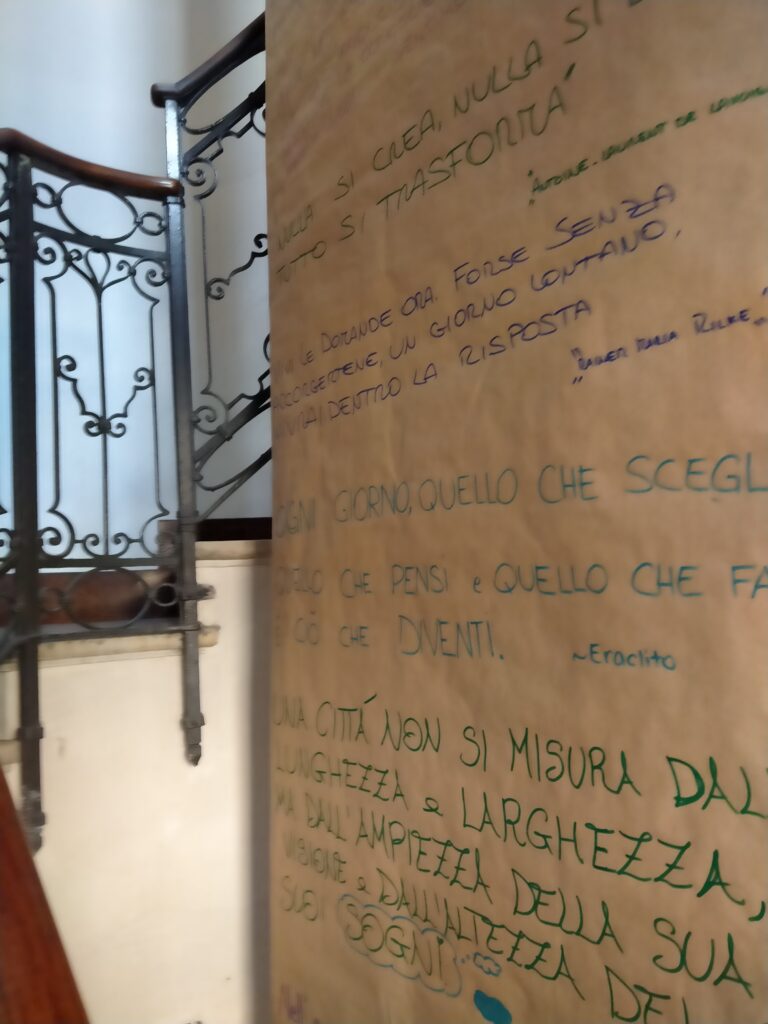 NULLA SI CREA, NULLA SI
TUTTO SI TRASFORMA"
"ANTOINE-LAURENT DE
LE DOMANDE ORA. FORSE SENZA
ACCORGERTENE, UN GIORNO LONTANO,
DENTRO LA RISPOSTA
"RAINER MARIA RILKE"
OGNI GIORNO, QUELLO CHE SCEGL
QUELLO CHE PENSI e QUELLO CHE FA
E CIÒ CHE DIVENTI.
~Eraclito
UNA CITTÁ NON SI MISURA DAL
LUNGHEZZA e LARGHEZZA,
MA DALL'AMPIEZZA DELLA SUA
VISIONE e DALL'ALTEZZA DEI
SUOI SOGNI